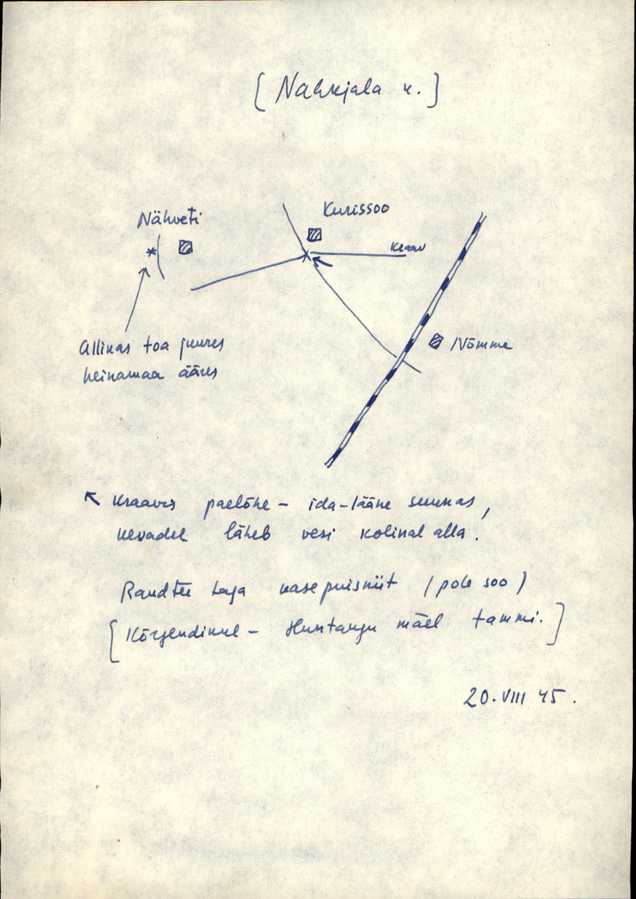 [Nahkjala k.]
Nähveti
Kurissoo
kraav
Nõmme
Allikas toa juures
heinamaa ääres
↖ kraavis paelõhe – ida-lääne suunas,
kevadel läheb vesi kolinal alla.
Raudtee taga kase puisniit (pole soo)
[Kõrgendikul – Huntaugu mäel tammi.]
20.VIII 45.